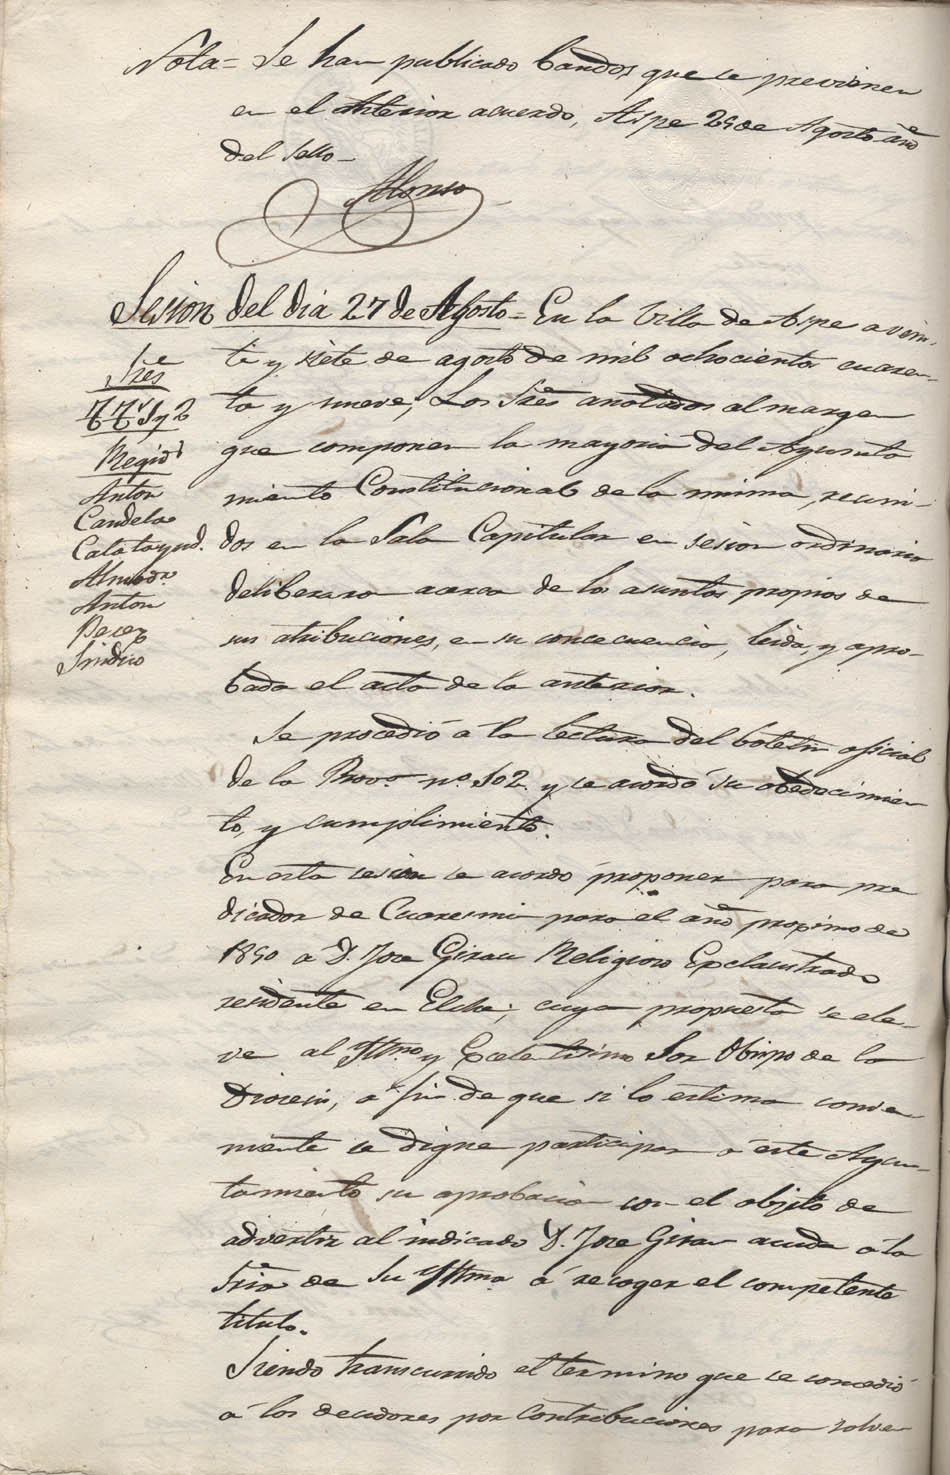 Nota = Se han publicado bandos que se previenen
en el anterior acuerdo, Aspe 25 de Agosto año
del sello_
Alonso
Sesion del dia 27 de Agosto = En la Villa de Aspe a vein-
te y siete de agosto de mil ochocientos cuaren-
ta y nueve, Los Sres anotados al margen
que componen la mayoria del Ayunta
miento Constitucional de la misma, reuni-
dos en la Sala Capitular en sesion ordinaria
deliberaron acerca de los asuntos propios de
sus atribuciones, en su concecuencia, leida, y apro-
bada el acta de la anterior.
Sres
Regid.s
Anton
Candela
Calatayud.
Almodr.
Anton
Perez
Sindico
Se procedió á la lectura del boletin oficial
de la Prova. nº. 102. y se acordó su obedecimien
to, y cumplimiento.
En esta sesion se acordó proponer para pre
dicador de Cuaresma para el año proximo de
1850 á D. Jose Girau Religioso Exclaustrado
residente en Elche; cuya propuesta se ele-
ve al Yltmo. y Excelentisimo Sor Obispo de la
Diocesis, á fin de que si lo estima conve
niente se digne participar á este Ayun-
tamiento su aprobacion con el objeto de
advertir al indicado D. Jose Girau acuda á la
Sria de Su Yltma. á recoger el competente
titulo.
Siendo transcurrido el termino que se concedió
á los deudores por contribuciones para solven